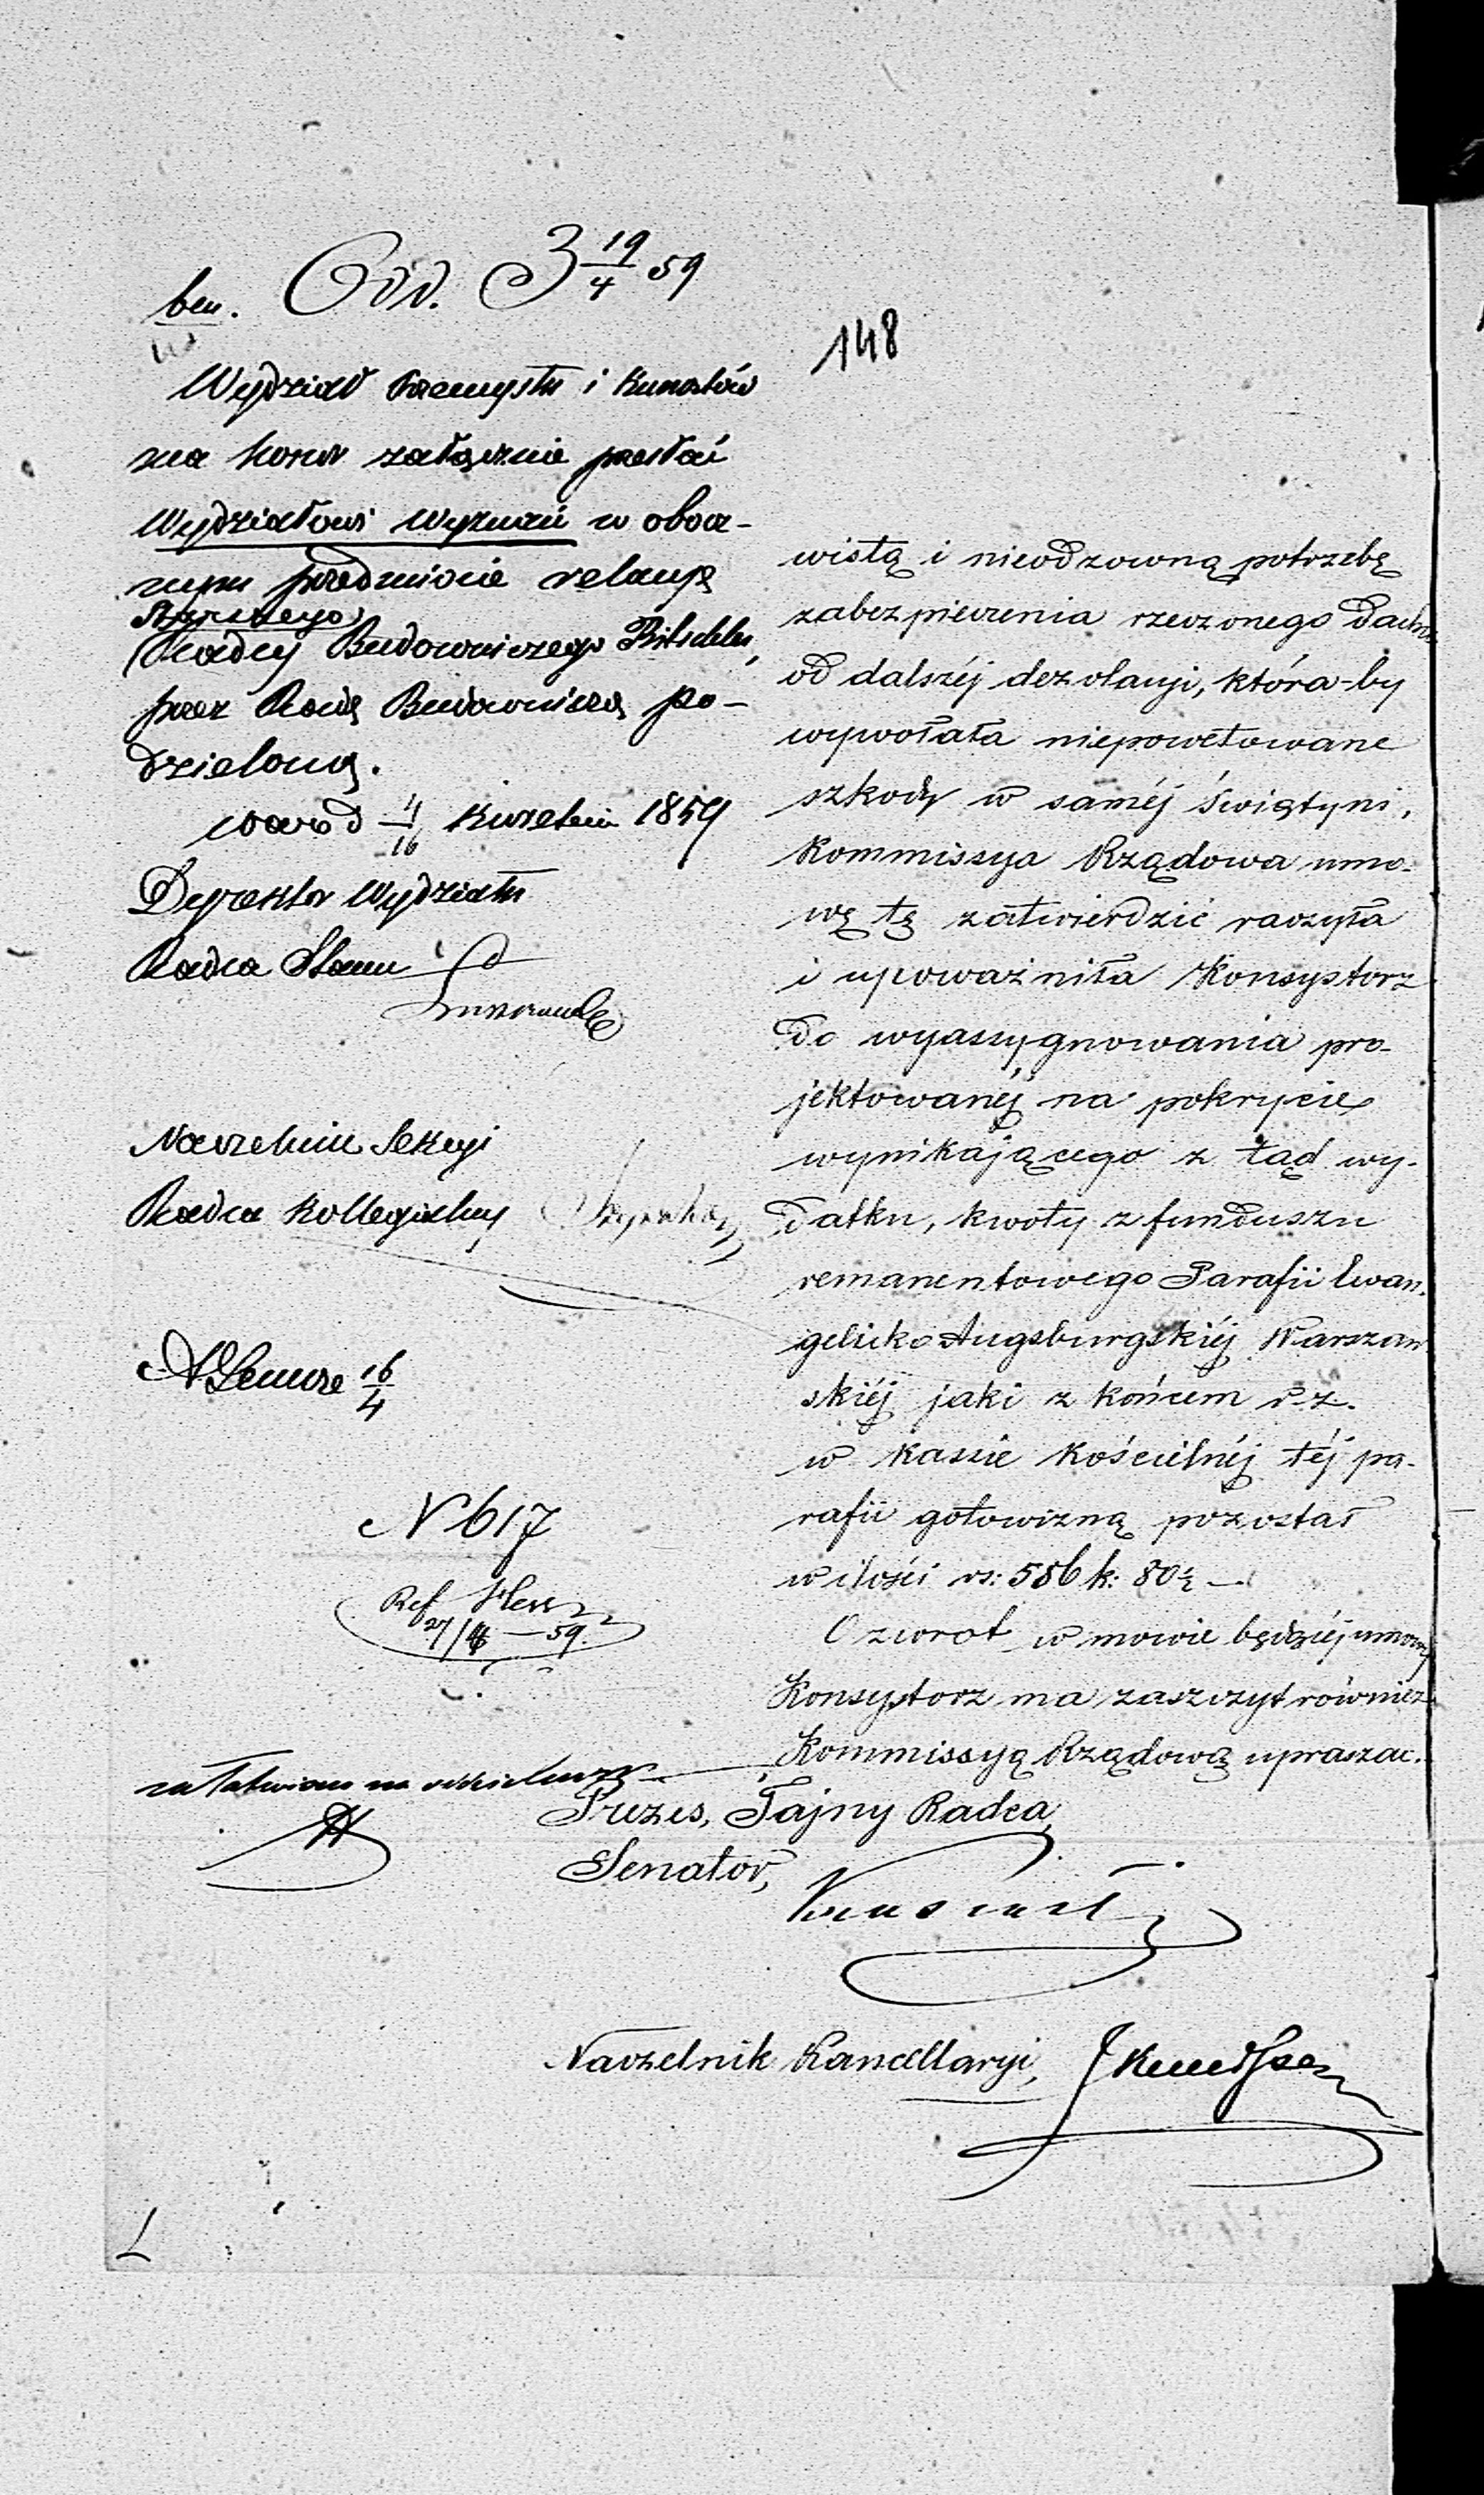 bem. Odd. 3 19/4 59
148
Wydział Przemysłu i Kunsztów
ma honor załącznie przesłać
Wydziałowi Wyznań w obocz-
nym przedmiocie relacyę
Starszego
Radcy Budowniczego
przez Radę Budowniczą po-
dzieloną.
d 4/16 Kwietnia 1859
Dyrektor Wydziału
Radca Stanu
Naczelnik Sekcyi
Radca Kollegialny
16/4
N 617
Ref
27/4 — 59.
załatwiono na
wistą i nieodzowną potrzebę
zabezpieczenia rzeczonego Dachu
od dalszéj dezolacyi, która-by
wywołała niepowetowane
szkody w saméj świątyni,
Kommissya Rządowa umo-
wę tę zatwierdzić raczyła
i upoważniła Konsystorz
do wyassygnowania pro-
jektowanéj na pokrycie
wynikającego z tąd wy-
datku, kwoty z funduszu
remanentowego Parafii Ewan-
gelicko Augsburgskiéj Warszaw-
skiéj jaki z końcem r. z.
w kassie Kościelnéj téj pa-
rafii gotowizną pozostał
w ilości rs: 586 k: 80½ —
O zwrot w mowie będącéj umowy
Konsystorz ma zaszczyt również
Kommissyą Rządową upraszać.
Prezes, Tajny Radca,
Senator,
Naczelnik Kancellaryi,